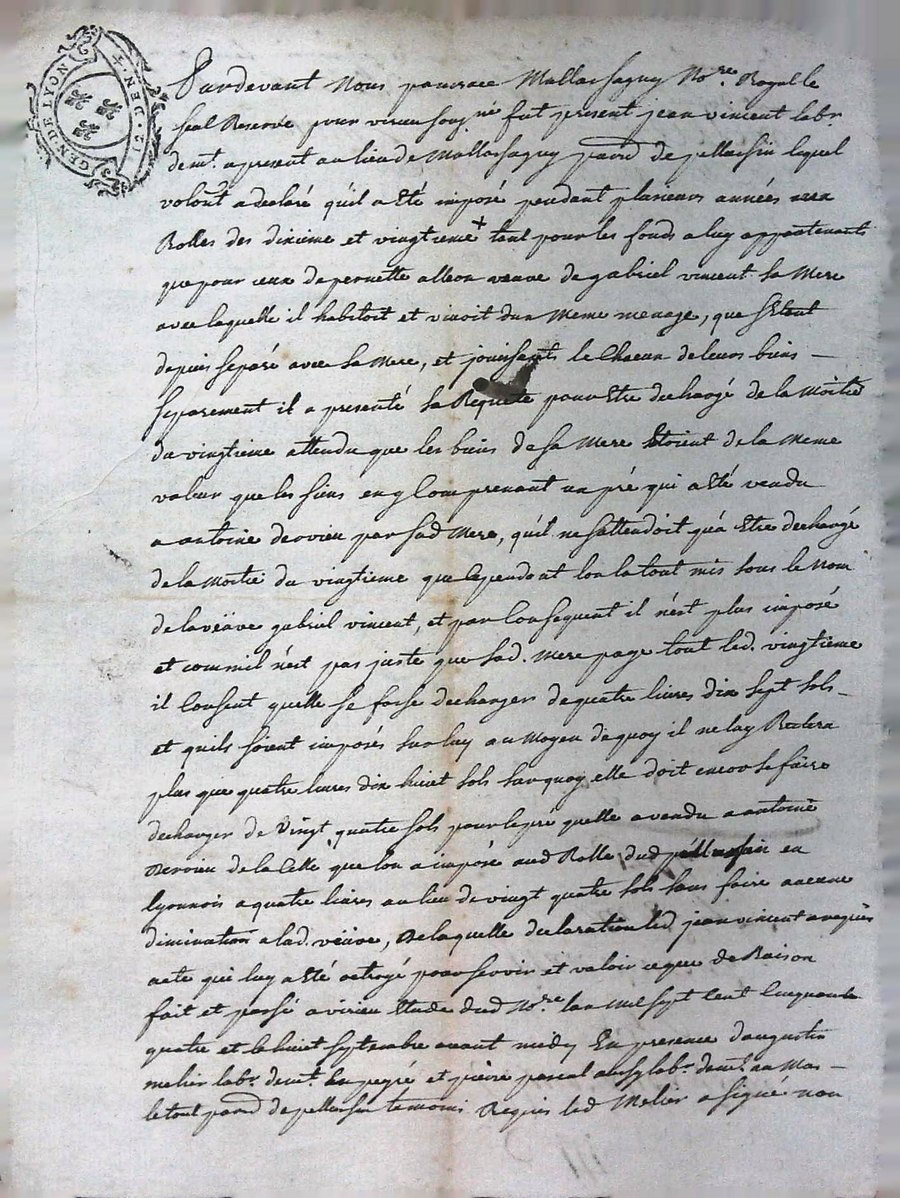 GEN. DE LYON
Pardevant Nous pancrace Mallassagny No.re Royal le
seul Reservé pour virieu soug.né fut present jean vincent lab.r
dem.t a present au lieu de Mallassagny par.d de pellussin lequel
volon.t a declaré quil a Eté imposé pendant plusieurs années aux
Rolles des dixieme et vingtieme + tant pour les fonds a luy appartenants
que pour ceux de pernette alleon veuve de gabriel vincent sa Mere
avec laquelle il habitoit et vivoit dun Meme menage, que sEtant
depuis separé avec sa Mere, et jouissants le Chacun de leurs biens —
separement il a presenté sa Requete pour Etre dechargé de la Moitié
du vingtieme attendu que les biens de sa Mere Etoient de la Meme
valeur que les siens en y Comprenant un pré qui a Eté vendu
a antoine dervieu par sad Mere, quil ne sattendoit qua Etre dechargé
de la Moitié du vingtieme que Cependant lon la tout mis sous le Nom
de la veuve gabriel vincent, et par Consequent il nest plus imposé
et comm il nest pas juste que sad. Mere paye tout led. vingtieme
il Consent quelle se fasse decharger de quatre livres dix sept sols —
et quils soient imposés sur luy au Moyen de quoy il ne luy Restera
plus que quatre livres dix huict sols sur quoy elle doit encor se faire
decharger de Vingt quatre sols pour le pre quelle a vendu a antoine
Dervieu de la Celle que lon a imposé aud Rolle dud pellussin en
lyonnois a quatre livres au lieu de vingt quatre sols sans faire aucune
diminution a lad. veüve, De laquelle declaration led. jean vincent a requis
acte qui luy a Eté octroyé pour servir et valoir ce que de Raison
fait et passé a virieu Etude dud No.re lan Mil sept Cent Cinquante
quatre et le huict septembre avant midy En presence daugustin
melier lab.r dem.t En peyré et pierre pascal aussy lab.r dem.t au Mas —
le tout par.d de pellussin temoins Requis led Melier a signé non